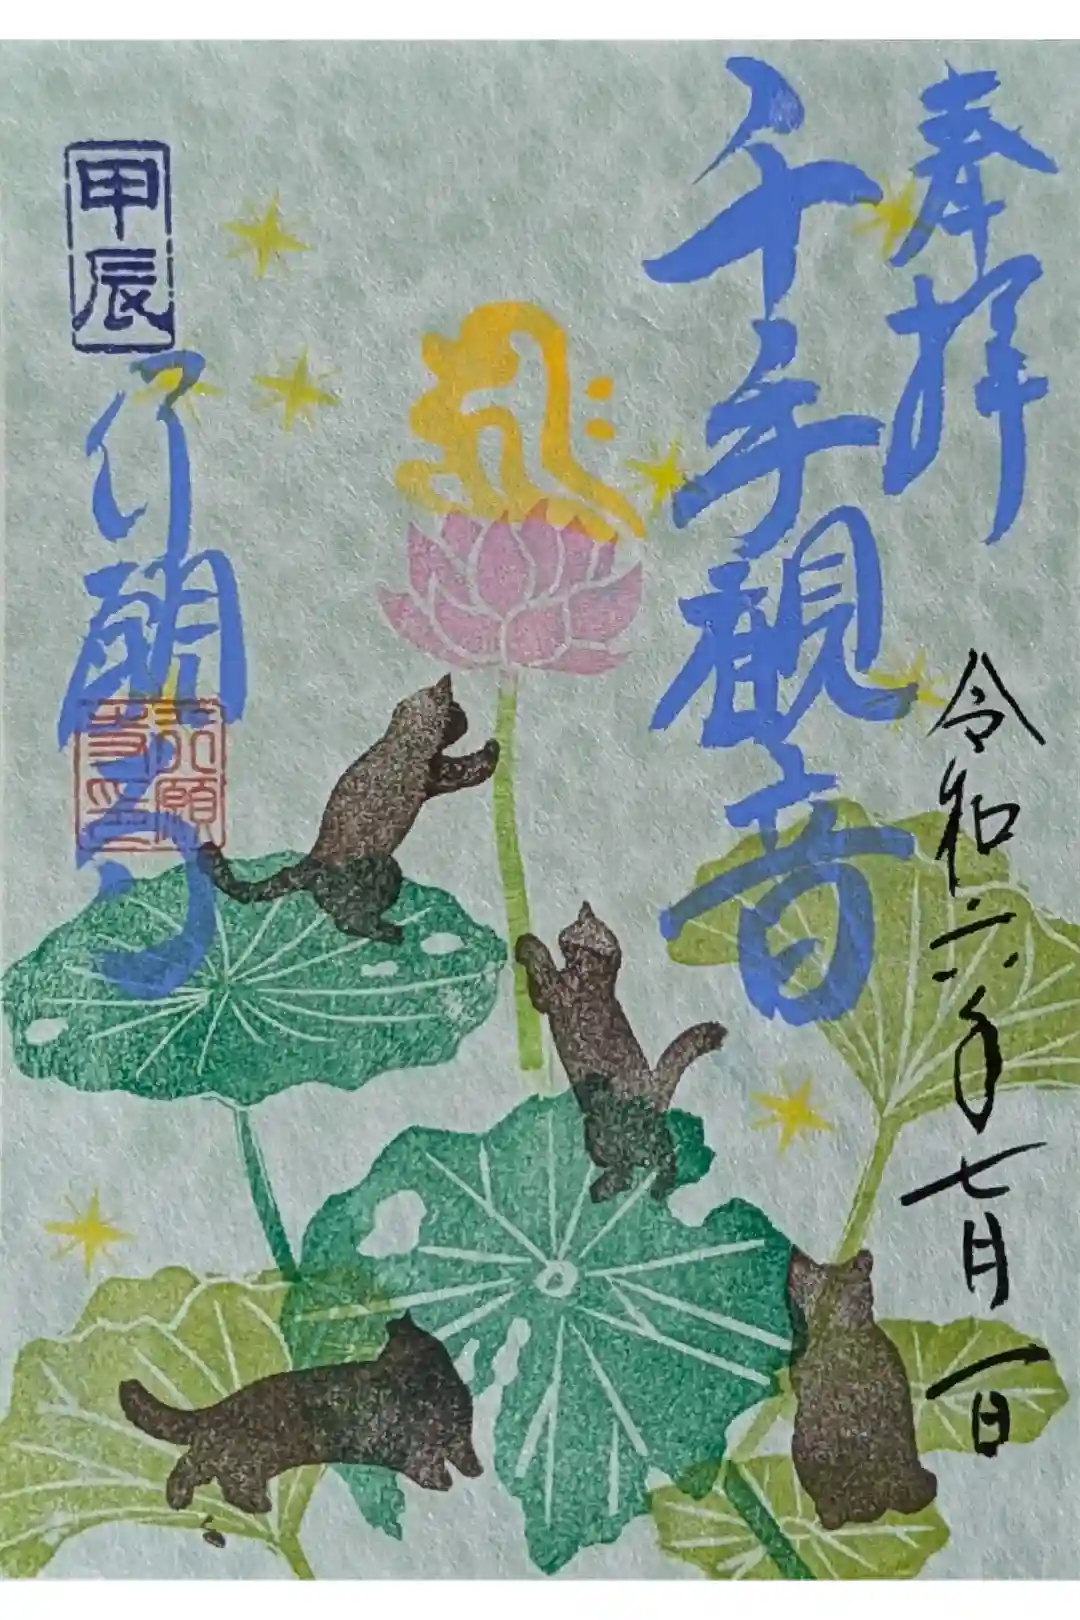 奉拝
令和六年七月一日
千手観音
甲辰
行願寺
行願
寺印